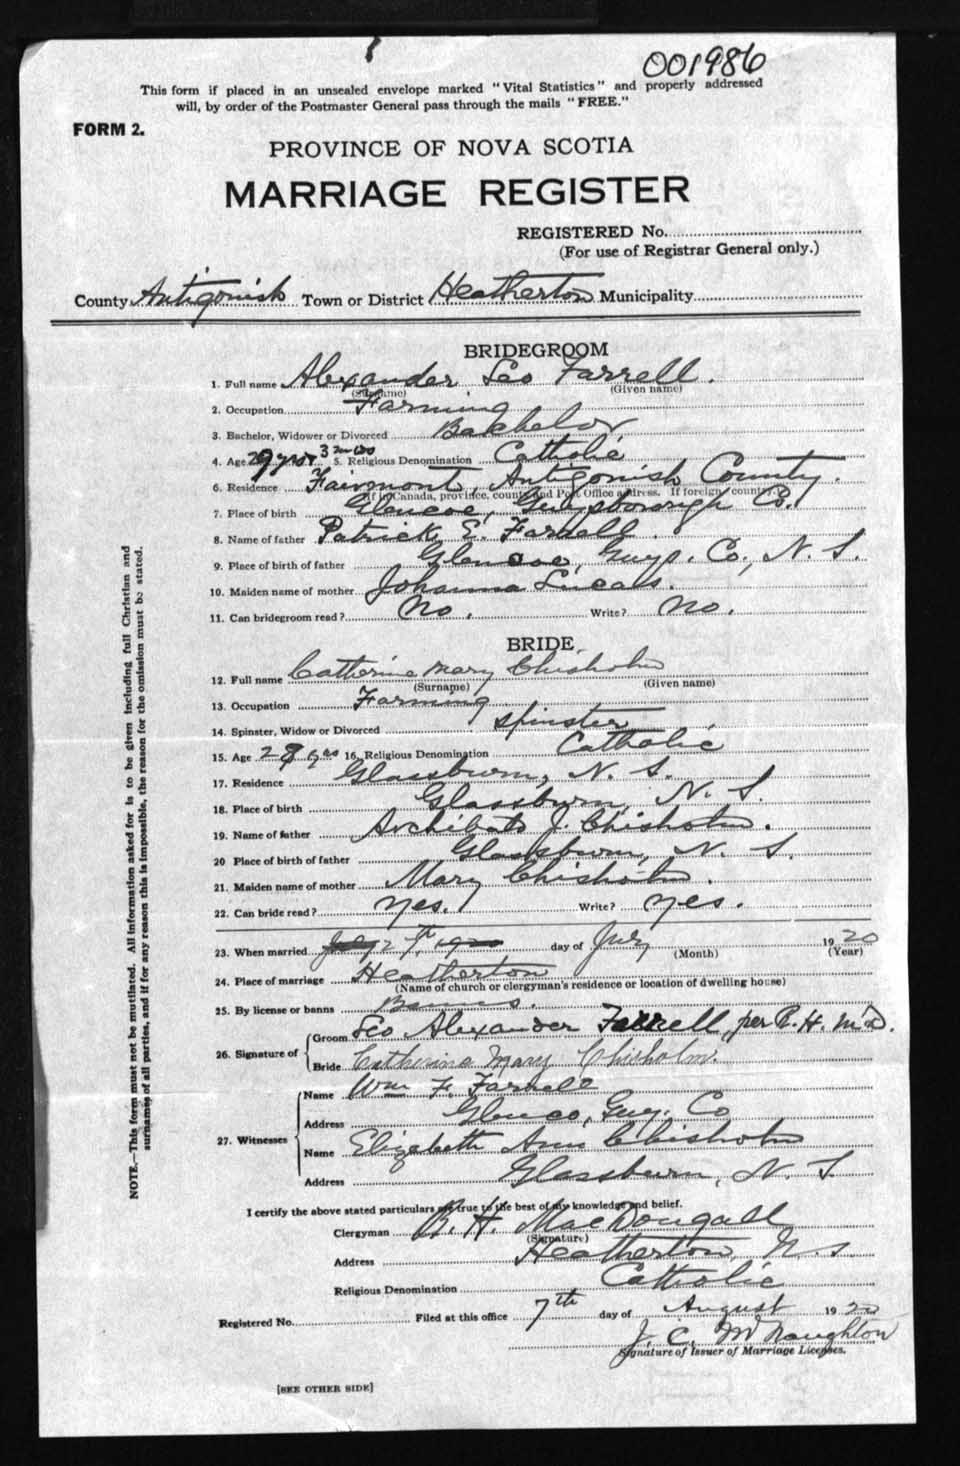 001986
This form if placed in an unsealed envelope marked "Vital Statistics" and properly addressed
will, by order of the Postmaster General pass through the mails "FREE."
FORM 2.
PROVINCE OF NOVA SCOTIA
MARRIAGE REGISTER
REGISTERED No.
(For use of Registrar General only.)
County Antigonish Town or District Heatherton Municipality
BRIDEGROOM
1. Full name Alexander Leo Farrell.
(Surname) (Given name)
2. Occupation Farming
3. Bachelor, Widower or Divorced Bachelor
4. Age 29 yrs 3 mos 5. Religious Denomination Catholic
6. Residence Fairmont, Antigonish County.
If in Canada, province, county and Post Office address. If foreign country
7. Place of birth Glencoe, Guysborough Co.
8. Name of father Patrick E. Farrell.
9. Place of birth of father Glencoe, Guys. Co., N. S.
10. Maiden name of mother Johanna Lucas.
11. Can bridegroom read? No. Write? No.
BRIDE
12. Full name Catherine Mary Chisholm
(Surname) (Given name)
13. Occupation Farming
14. Spinster, Widow or Divorced Spinster
15. Age 28 yrs 16. Religious Denomination Catholic
17. Residence Glassburn, N. S.
18. Place of birth Glassburn, N. S.
19. Name of father Archibald J. Chisholm.
20 Place of birth of father Glassburn, N. S.
21. Maiden name of mother Mary Chisholm.
22. Can bride read? Yes. Write? Yes.
23. When married July 27, 1920 day of July 1920
(Month) (Year)
24. Place of marriage Heatherton
(Name of church or clergyman's residence or location of dwelling house)
25. By license or banns Banns.
26. Signature of Groom Leo Alexander Farrell, per R. H. McD.
Bride Catherine Mary Chisholm.
27. Witnesses Name Wm F. Farrell
Address Glencoe, Guy. Co
Name Elizabeth Ann Chisholm
Address Glassburn, N. S
I certify the above stated particulars are true to the best of my knowledge and belief.
Clergyman R. H. MacDougall
(Signature)
Address Heatherton, N. S.
Religious Denomination Catholic
Registered No. Filed at this office 7th day of August 1920
J. C. McNaughton
Signature of Issuer of Marriage Licenses.
[SEE OTHER SIDE]
NOTE.—This form must not be mutilated. All information asked for is to be given including full Christian and
surnames of all parties, and if for any reason this is impossible, the reason for the omission must be stated.